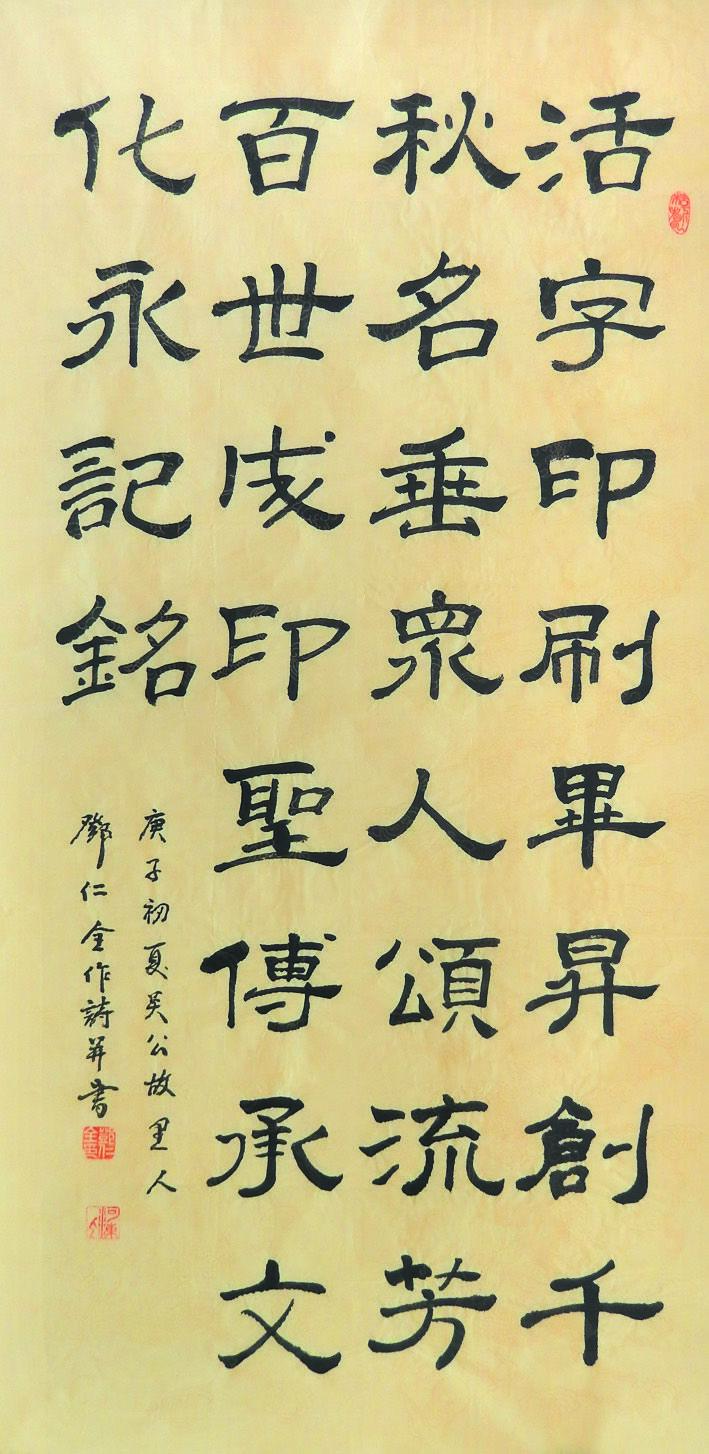 活字印刷畢昇創千
秋名垂眾人頌流芳
百世成印聖傳承文
化永記銘
庚子初夏吴公故里人
鄧仁全作詩并書